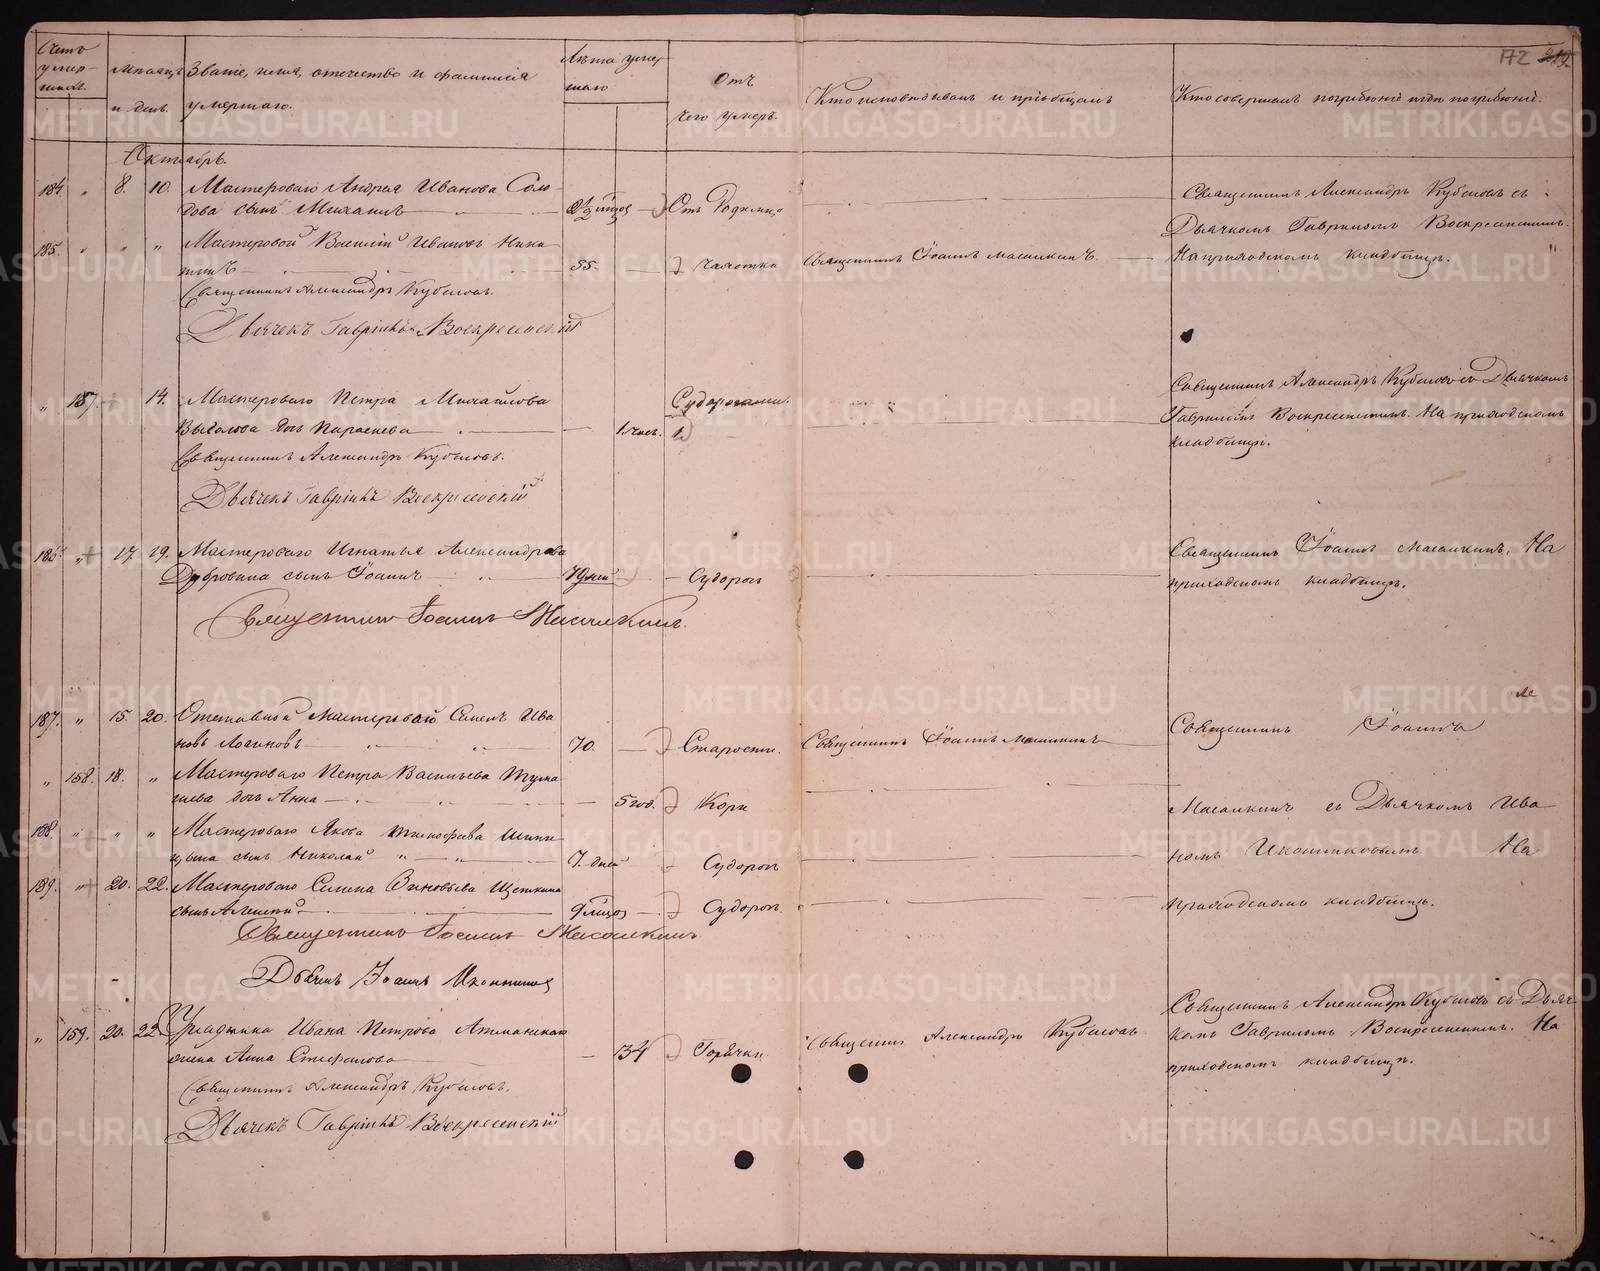 172 219.
Счетъ умер-шихъ.
Мѣсяцъ и день.
Званіе, имя, отечество и фамилія умершаго.
Лѣта умершаго
Отъ чего умеръ.
Кто исповѣдывалъ и пріобщалъ
Кто совершалъ погребеніе и гдѣ погребены.
Октябрь.
184 " 8. 10. Мастероваго Андрея Иванова Соло-
дова сынъ Михаилъ Отъ Родимца
Священникъ Александръ Кубасовъ съ
Дьячкомъ Гавриломъ Воскресенскимъ.
185. " " " Мастеровой Василій Ивановъ Ники
тинъ 55. Чахотки Священникъ Іоаннъ Масалкинъ. На приходскомъ кладбищѣ.
Священникъ Александръ Кубасовъ.
Дьячекъ Гавріилъ Воскресенскій
" 157. 14. Мастероваго Петра Михайлова Судорогами.
дочь Параскева 1 часъ.
Священникъ Александръ Кубасовъ съ Дьячкомъ
Гавриломъ Воскресенскимъ. На приходскомъ
кладбищѣ.
Священникъ Александръ Кубасовъ.
Дьячекъ Гавріилъ Воскресенскій
186. " 17. 19. Мастероваго Игнатья Александрова
Дубровина сынъ Іоаннъ дней Судорог
Священникъ Іоаннъ Масалкинъ. На
приходскомъ кладбищѣ.
Священникъ Іоаннъ Масалкинъ.
187. " 15. 20. Отставной Мастеровой Семенъ Ива
новъ Логиновъ 70. Старости. Священникъ Іоаннъ Масалкинъ
Священникъ Іоаннъ
" 158. 18. " Мастероваго Петра Васильева
дочь Анна 5 год. Кори
Масалкинъ съ Дьячкомъ Ива
188. " " " Мастероваго Якова Тимофеева
сынъ Николай 7. дней Судорог
номъ На
189. " 20. 22. Мастероваго Семена Зиновьева Щеткина
сынъ Алексей 9 Судорог.
приходскомъ кладбищѣ.
Священникъ Іоаннъ Масалкинъ
Дьячекъ Іоаннъ
" 159. 20. 22. Урядника Ивана Петрова
жена Анна Стефанова 34 Горячки
Священникъ Александръ Кубасовъ
Священникъ Александръ Кубасовъ съ Дьяч
комъ Гавриломъ Воскресенскимъ. На
приходскомъ кладбищѣ.
Священникъ Александръ Кубасовъ.
Дьячекъ Гавріилъ Воскресенскій
METRIKI.GASO-URAL.RU